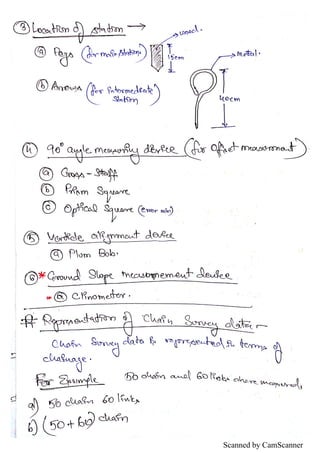 ③ Location of station →
ⓐ Pegs (for main station)
wood.
15cm
Metal.
ⓑ Arrows (for intermediate station)
40cm
④ 90° angle measuring device (for offset measurement)
ⓐ Cross-Staff
ⓑ Prism Square
ⓒ Optical Square (Error min)
⑤ Verticle alignment device
ⓐ Plum Bob.
⑥ * Ground Slope measurement device
ⓐ Clinometer.
Representation of Chain Survey data -
Chain Survey data is represented in terms of
chainage.
For Example 50 chain and 60 links were measured,
a) 50 chain 60 links
b) (50+60) chain
Scanned by CamScanner